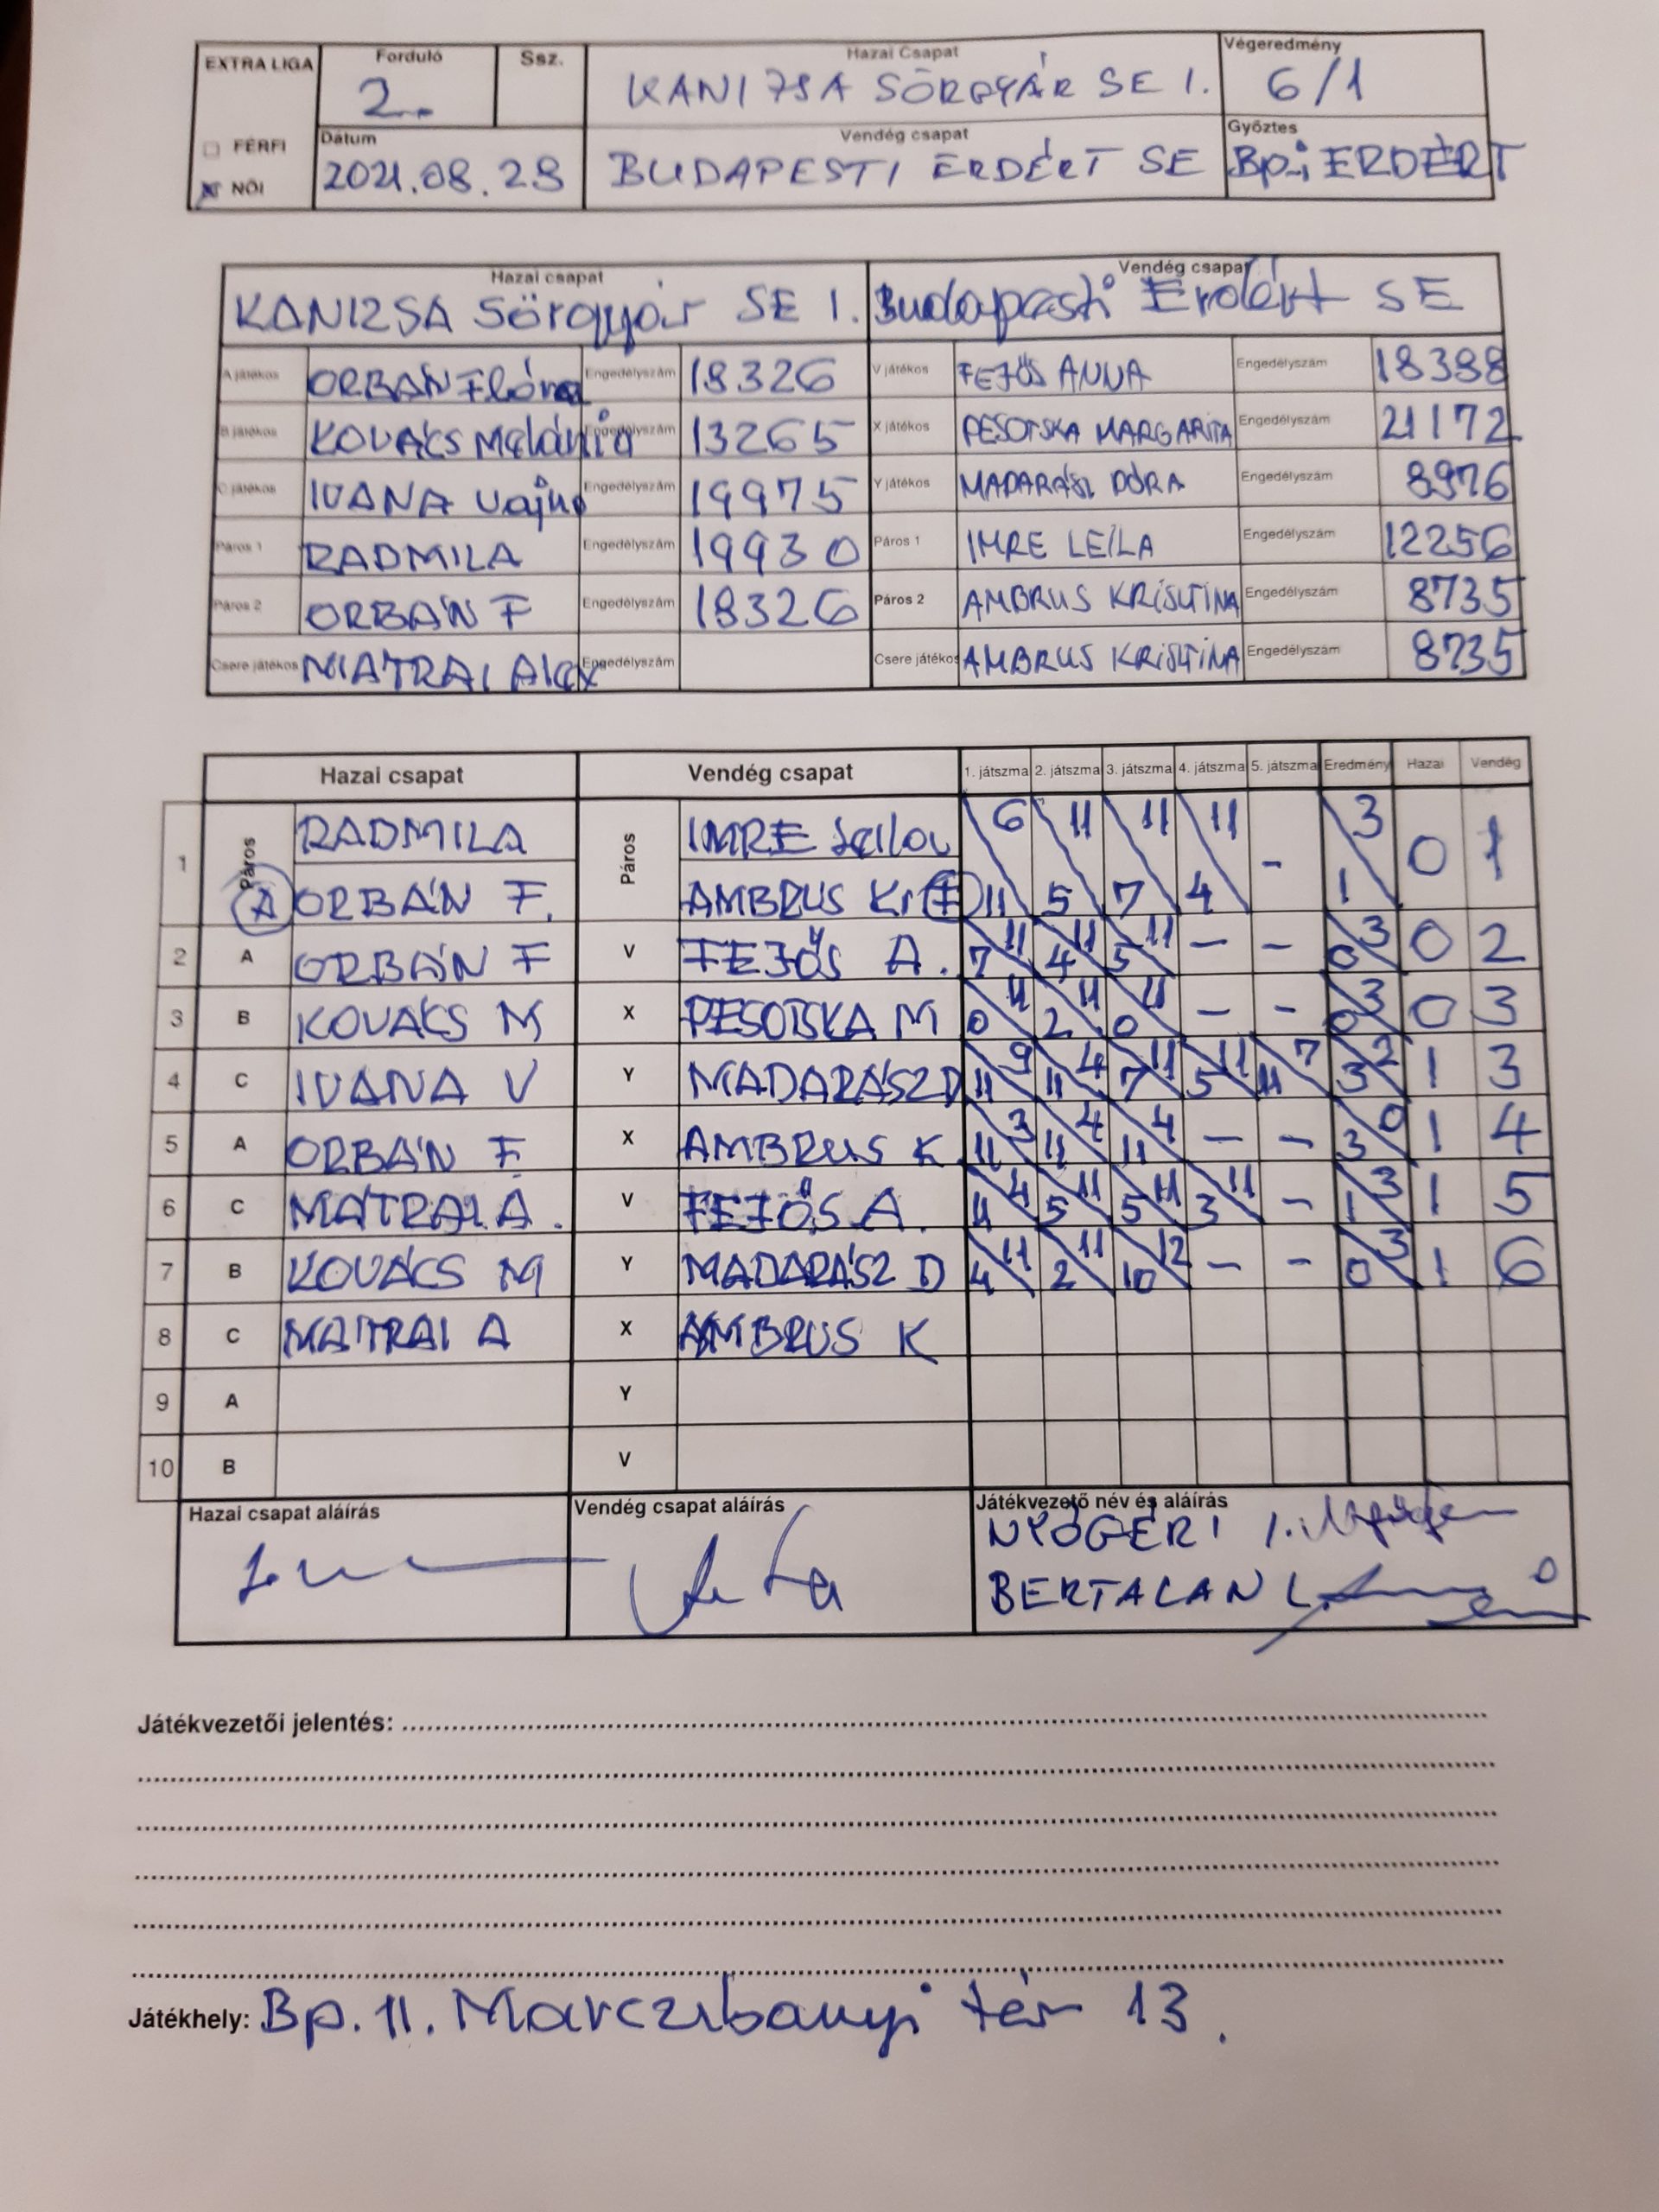 EXTRA LIGA
Forduló
2.
Ssz.
Hazai Csapat
KANIZSA SÖRGYÁR SE 1.
Végeredmény
6/1
FÉRFI
NŐI
Dátum
2021.08.28
Vendég csapat
BUDAPESTI ERDÉRT SE
Győztes
Bp-i ERDÉRT
Hazai csapat
KANIZSA Sörgyár SE 1.
Vendég csapat
Budapesti Erdért SE
A játékos ORBÁN Flóra Engedélyszám 18326 V játékos FEJŐS ANNA Engedélyszám 18388
B játékos KOVÁCS Melánia Engedélyszám 13265 X játékos PESOTSKA MARGARITA Engedélyszám 21172
C játékos IVANA Engedélyszám 19975 Y játékos MADARÁSZ DÓRA Engedélyszám 8976
Páros 1 RADMILA Engedélyszám 19930 Páros 1 IMRE LEILA Engedélyszám 12256
Páros 2 ORBÁN F Engedélyszám 18326 Páros 2 AMBRUS KRISZTINA Engedélyszám 8735
Csere játékos MÁTRAI Alex Engedélyszám Csere játékos AMBRUS KRISZTINA Engedélyszám 8735
Hazai csapat Vendég csapat 1. játszma 2. játszma 3. játszma 4. játszma 5. játszma Eredmény Hazai Vendég
1 Páros RADMILA Páros IMRE Leila 6 11 11 11 - 3 0 1
A ORBÁN F. AMBRUS 11 5 7 4 1
2 A ORBÁN F V FEJŐS A. 7 11 4 11 5 11 - - 0 3 0 2
3 B KOVÁCS M X PESOTSKA M 0 11 2 11 0 11 - - 0 3 0 3
4 C IVANA V Y MADARÁSZ D 11 9 11 4 7 11 5 11 11 7 3 2 1 3
5 A ORBÁN F X AMBRUS K 11 3 11 4 11 4 - - 3 0 1 4
6 C MÁTRAI A. V FEJŐS A. 11 4 5 11 5 11 3 11 - 1 3 1 5
7 B KOVÁCS M Y MADARÁSZ D 4 11 2 11 10 12 - - 0 3 1 6
8 C MÁTRAI A X AMBRUS K
9 A Y
10 B V
Hazai csapat aláírás Vendég csapat aláírás Játékvezető név és aláírás
NYŐGÉRI I.
BERTALAN L.
Játékvezetői jelentés:
Játékhely: Bp. II. Marczibanyi tér 13.